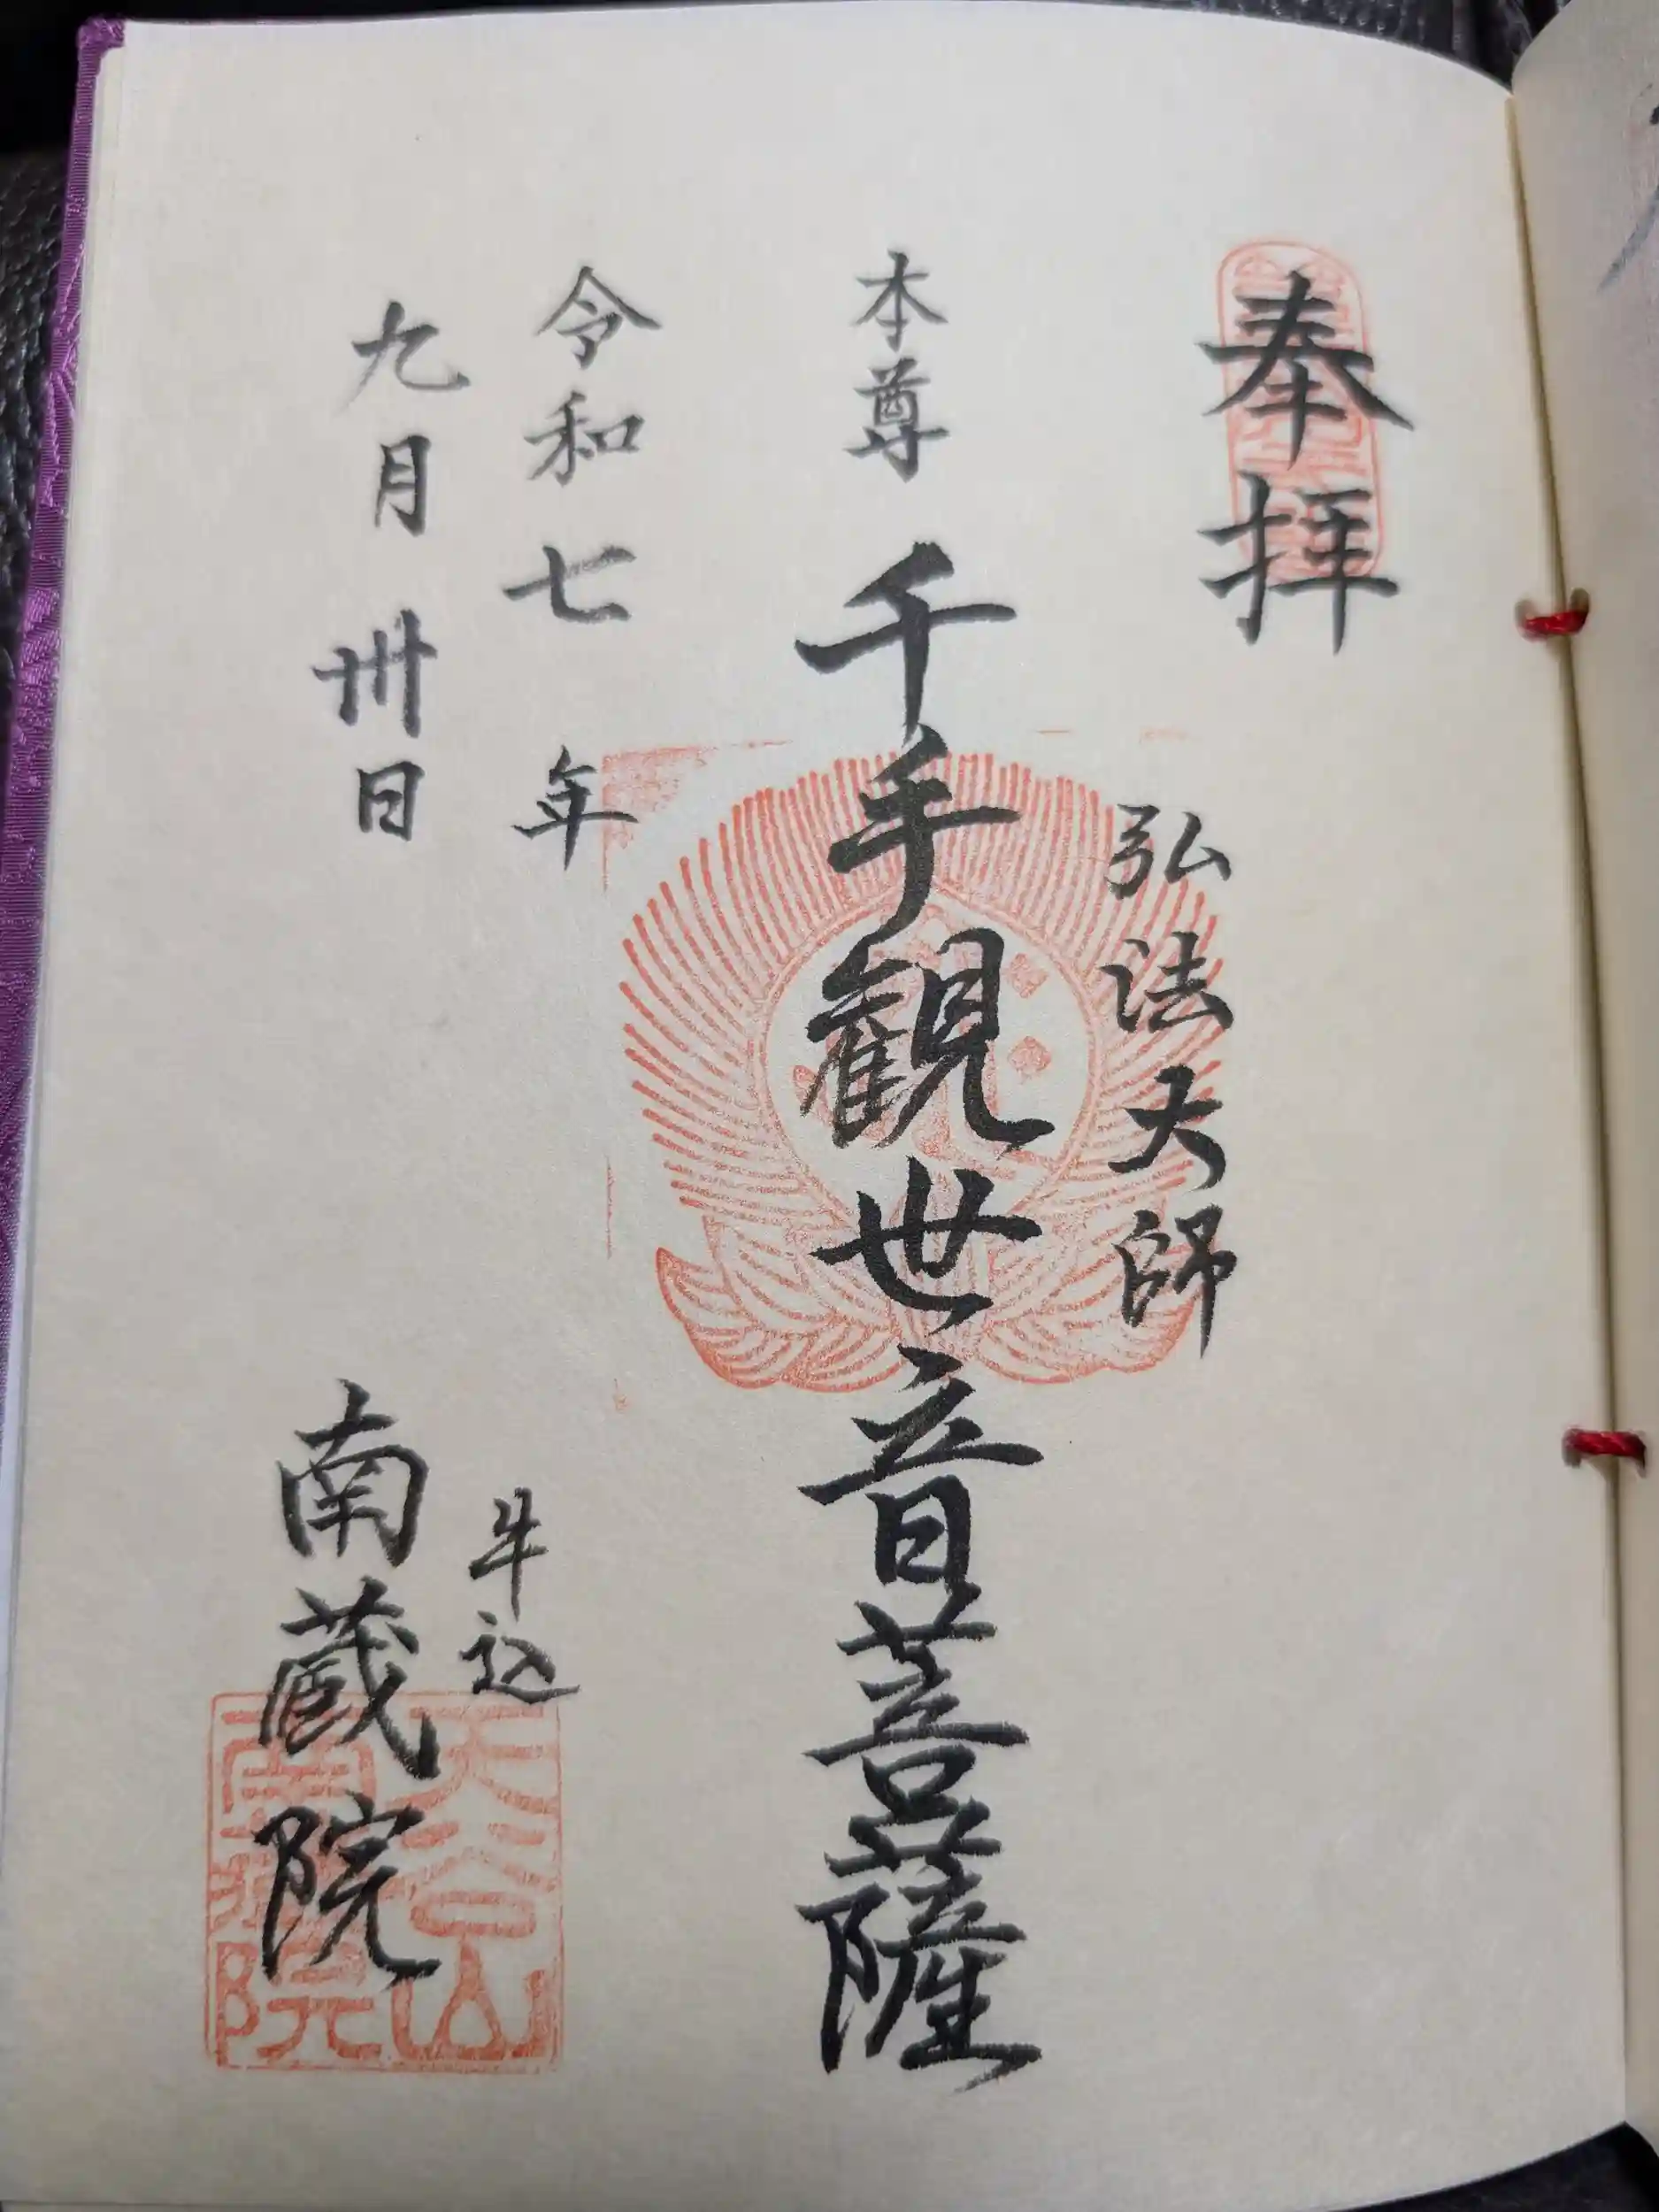 奉拝
弘法大師
本尊 千手観世音菩薩
令和七年
九月卅日
牛込
南蔵院
天谷山
南蔵院